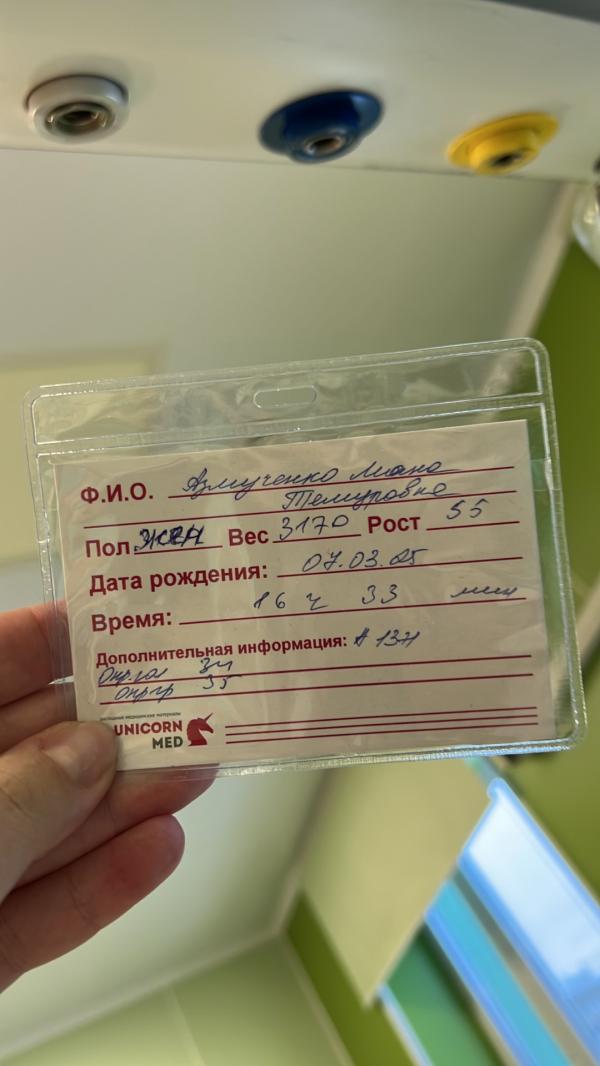 Ф.И.О. Азмученко Лиана
Темуровна
Пол ЖЕН Вес 3170 Рост 55
Дата рождения: 07.03.25
Время: 16 ч 33 мин
Дополнительная информация: # 1311
Окр.гол 34
Окр гр 35
UNICORN
MED